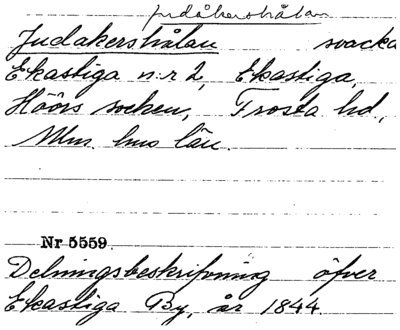 Judåkershålan
Judakershålan svacka
Ekastiga n:r 2, Ekastiga,
Höörs socken, Frosta hd.,
Mlm. hus län.
Nr 5559.
Delningsbeskrifvning öfver
Ekastiga By, år 1844.